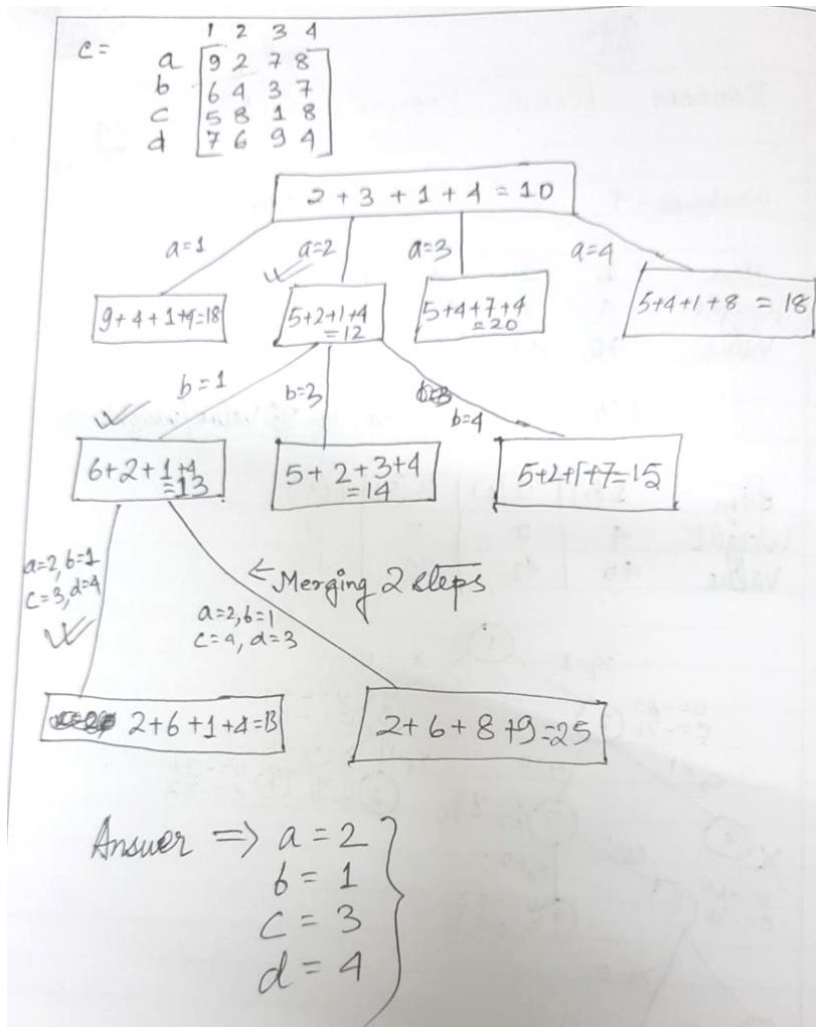 1 2 3 4
c =
a 9 2 7 8
b 6 4 3 7
c 5 8 1 8
d 7 6 9 4
2 + 3 + 1 + 4 = 10
a=1 a=2 a=3 a=4
9+4+1+4=18
5+2+1+4
=12
5+4+7+4
=20
5+4+1+8 = 18
b=1 b=3 b=4
6+2+1+4
=13
5+2+3+4
=14
5+2+1+7=15
a=2, b=1
c=3, d=4
← Merging 2 steps
a=2, b=1
c=4, d=3
2+6+1+4=13
2+6+8+9=25
Answer ⇒ a = 2
b = 1
c = 3
d = 4